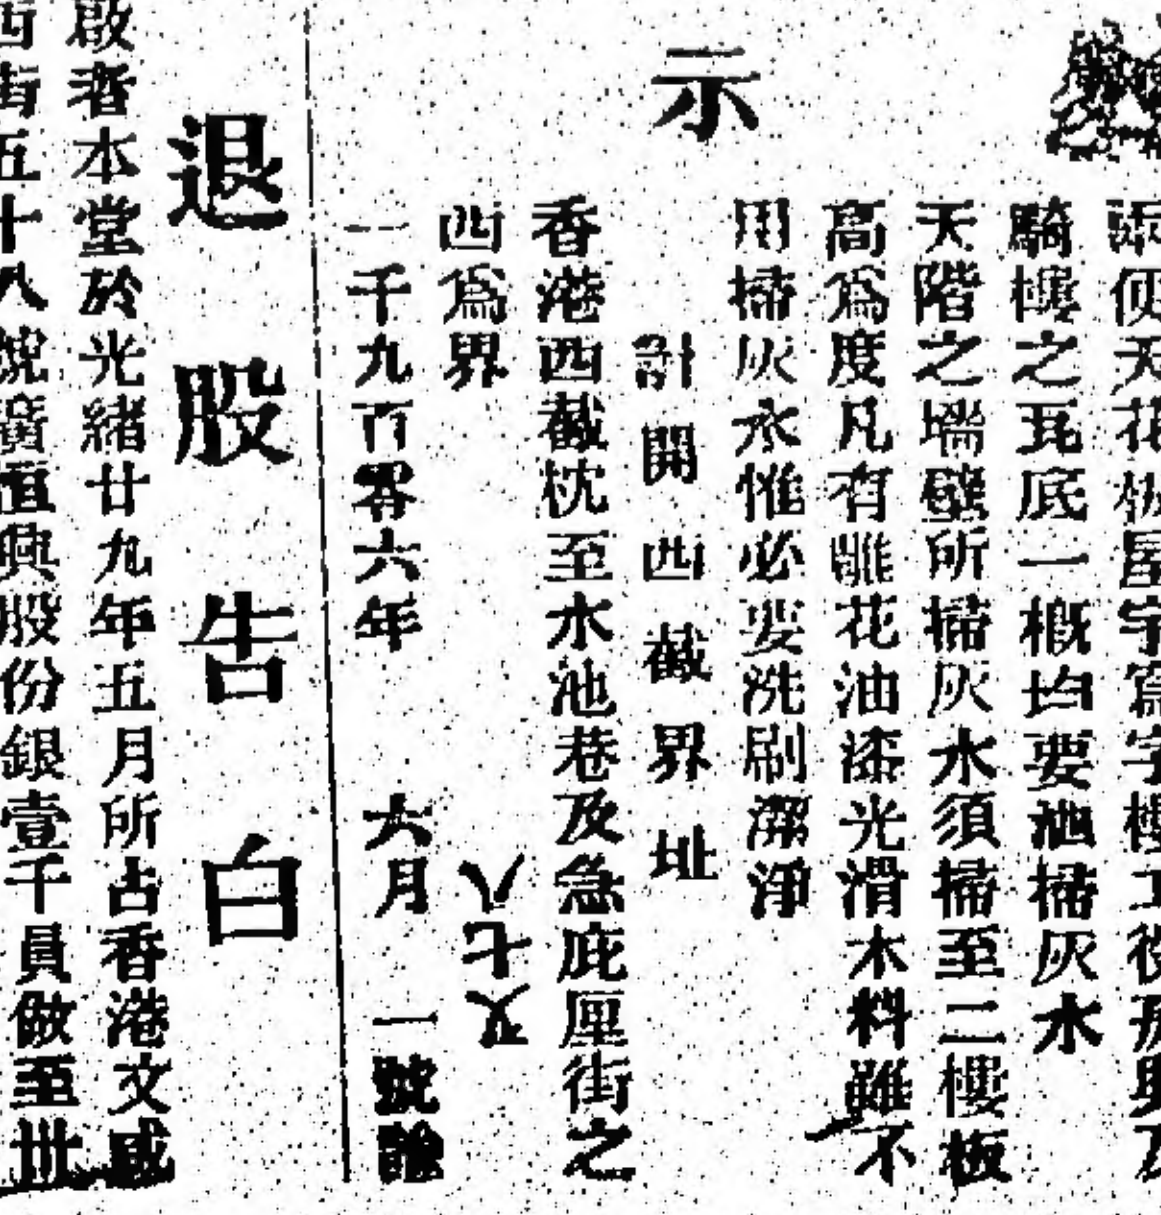 示
便天花板屋宇寫字樓工役房與
騎樓之瓦底一概均要池掃灰水
天階之墻壁所掃灰水須掃至二樓板
高爲度凡有雕花油漆光滑木料雖不
用掃灰水惟必要洗刷潔淨
計開西截界址
香港西截枕至水池巷及急庇厘街之
西爲界
八七又
一千九百零六年 六月 一號諭
退股告白
啟者本堂於光緒廿九年五月所占香港文咸
西街五十八號廣恒興股份銀壹千員做至卅